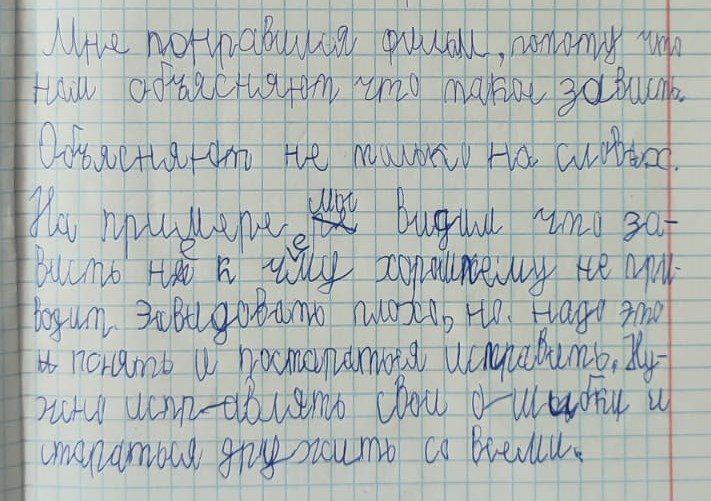 Мне понравился фильм, потому что
нам объясняют что такое зависть.
Объясняют не только на словах.
На примере мы видим что за-
висть не к чему хорошему не при-
водит. Завидовать плохо, но надо это
понять и постараться исправить. Ну-
жно исправлять свои ошибки и
стараться дружить со всеми.